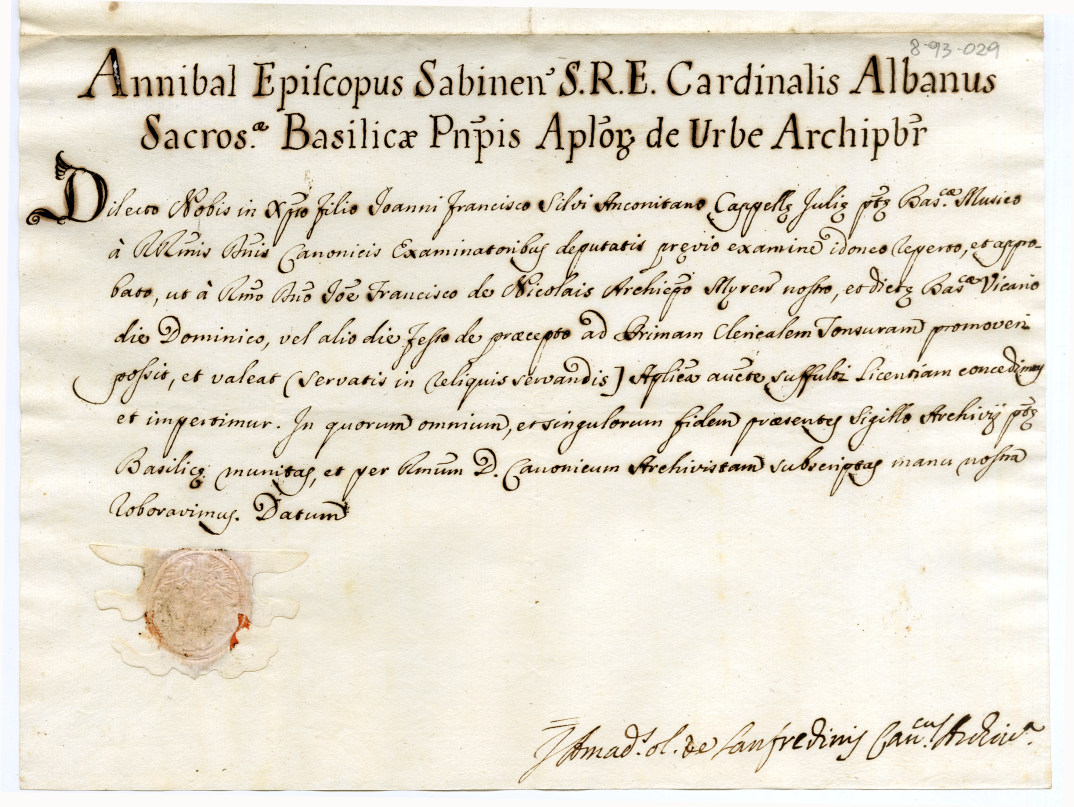 8-93-029
Annibal Epiſcopus Sabineñ S.R.E. Cardinalis Albanus
Sacros.æ Basilicæ Pñpis Aplõrꝫ de Urbe Archipbr̃
Dilecto Nobis in Xp̃to filio Joanni Francisco Silvi Anconitano Cappellę Julię ptę Bas.cæ Musico
à RRm̃is DD̃nis Canonicis Examinatoribus deputatis pręvio examine idoneo reperto, et appro-
bato, ut à Rm̃o Dn̄o Joẽ Francisco de Nicolais Archiep̃o Myreñ nostro, et dictę Bas.æ Vicario
die Dominico, vel alio die festo de præcepto ad Primam Clericalem Tonsuram promoveri
possit, et valeat (servatis in reliquis servandis] Aplica auctẽ suffulti Licentiam concedimus
et impertimur. In quorum omnium, et singulorum fidem præsentes Sigillo Archivij ptę
Basilicę munitas, et per Rm̃um D. Canonicum Archivistam subscriptas manu nostra
roboravimus. Datum
Amad.s ol. de Lanfredinis Can.cus Archiv.a